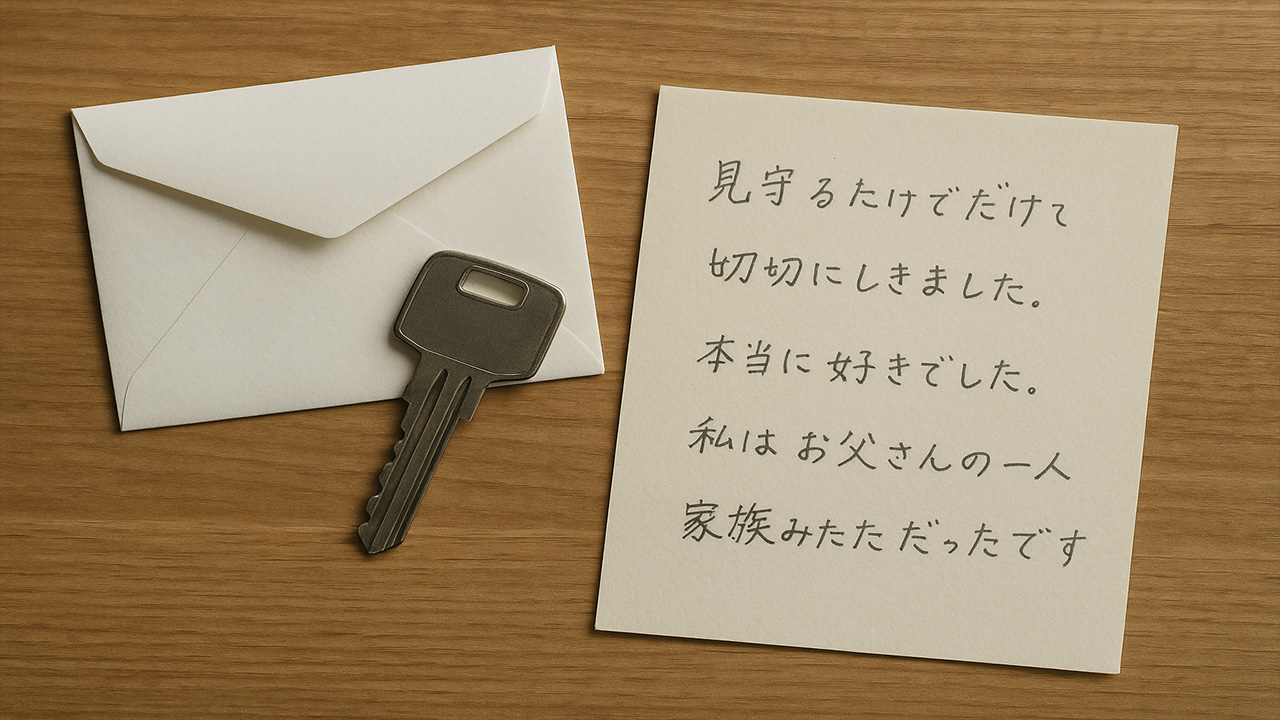 見守るたけでだけて
切切にしきました。
本当に好きでした。
私はお父さんの一人
家族みたただったです